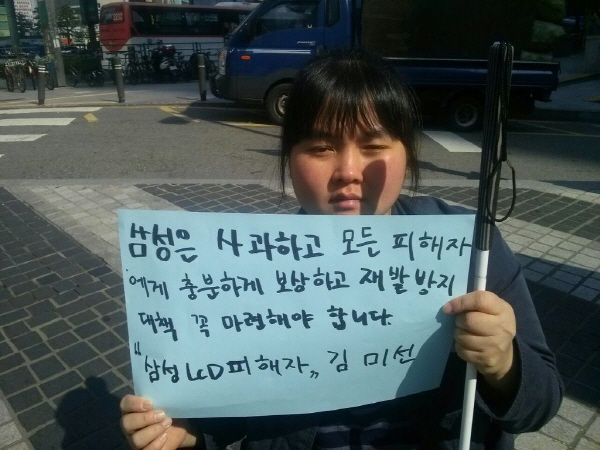 삼성은 사과하고 모든 피해자
에게 충분하게 보상하고 재발방지
대책 꼭 마련해야 합니다.
"삼성 LCD 피해자„ 김미선